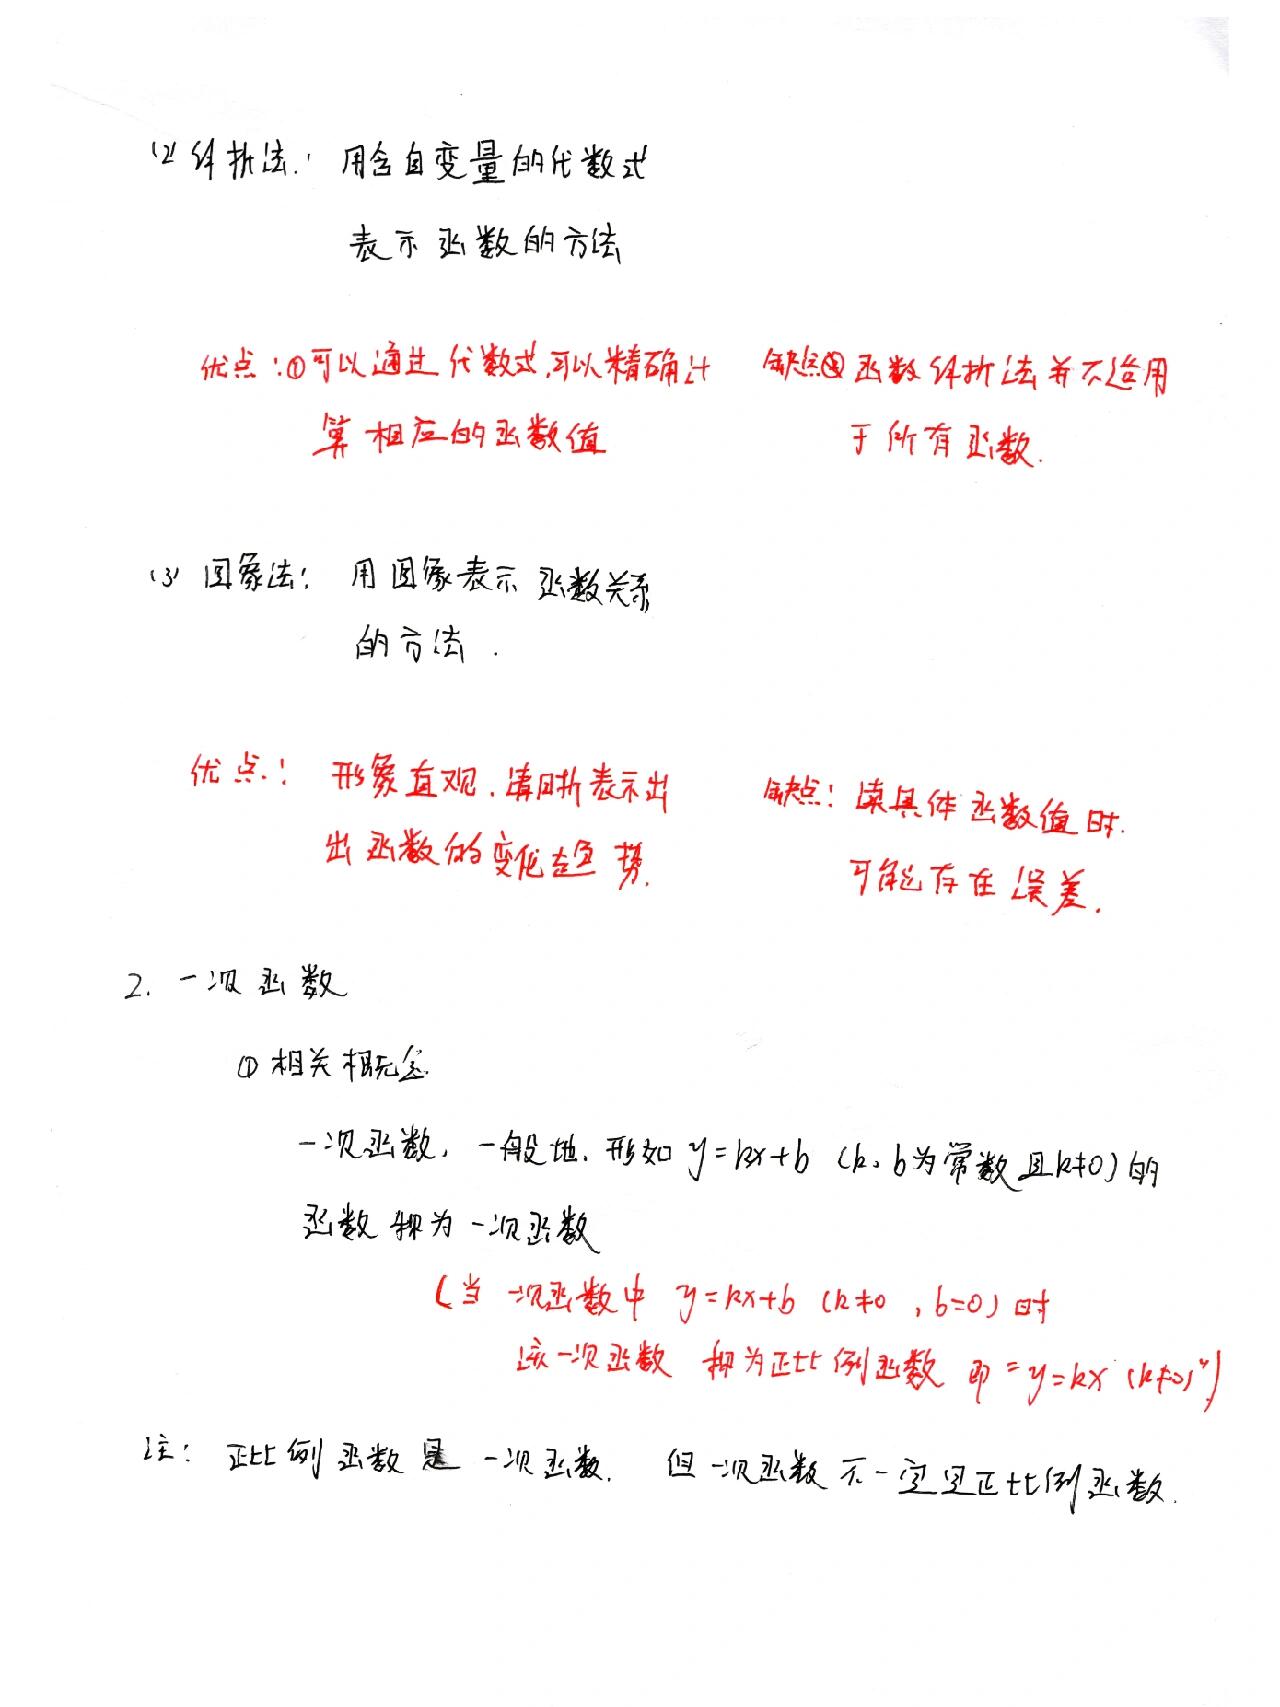 (2) 解析法: 用含自变量的代数式
表示函数的方法
优点:①可以通过代数式,可以精确计
算相应的函数值
缺点① 函数解析法并不适用
于所有函数.
(3) 图象法: 用图象表示函数关系
的方法.
优点: 形象直观,清晰表示出
出函数的变化趋势.
缺点: 读具体函数值时.
可能存在误差.
2. 一次函数
① 相关概念.
一次函数, 一般地, 形如 y=kx+b (k、b为常数且k≠0)的
函数称为一次函数
(当一次函数中 y=kx+b (k≠0,b=0)时
该一次函数 称为正比例函数 即"y=kx (k≠0)")
注: 正比例函数是一次函数. 但一次函数不一定是正比例函数.